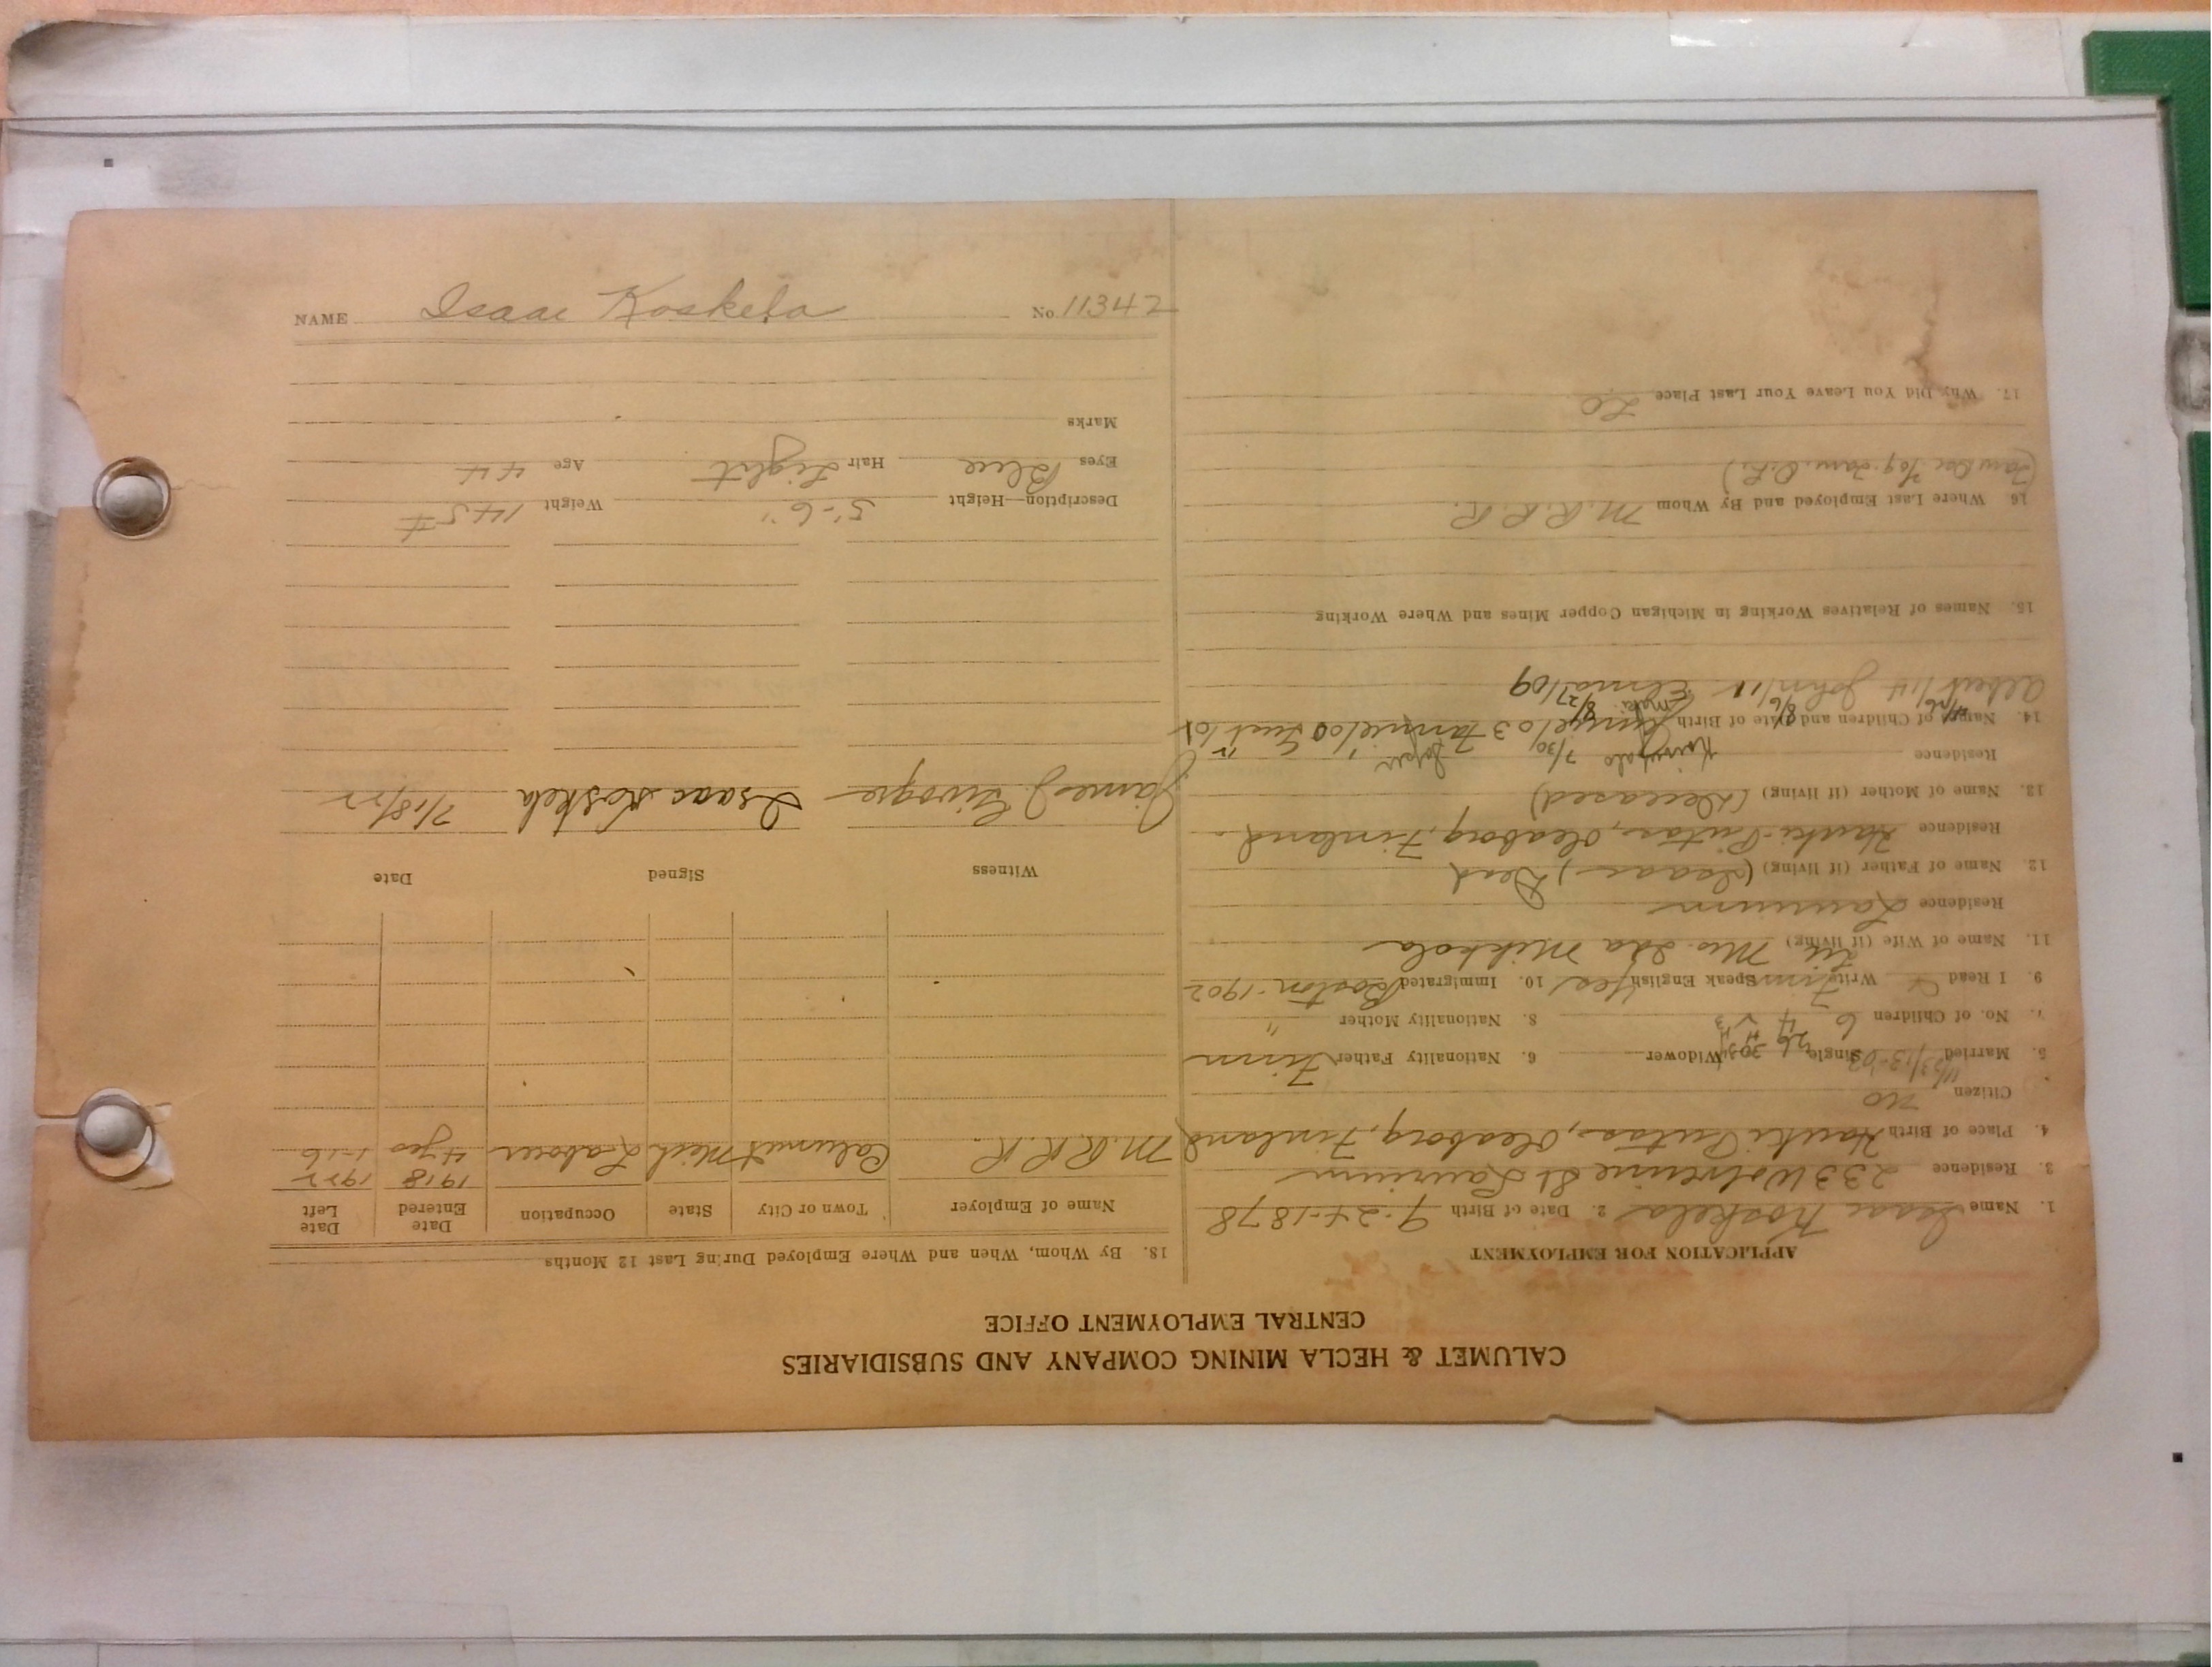 CALUMET & HECLA MINING COMPANY AND SUBSIDIARIES
CENTRAL EMPLOYMENT OFFICE
APPLICATION FOR EMPLOYMENT
1. Name Isaac Koskela 2. Date of Birth 9-24-1878
3. Residence 233 Wolverine St Laurium
4. Place of Birth Hauki Putas, Oleaborg, Finland
Citizen no
5. Married Single Widower 6. Nationality Father Finn
7. No. of Children 6 8. Nationality Mother "
9. I Read Write Finn Speak English Yes 10. Immigrated Boston-1902
11. Name of Wife (if living) Mrs. Ida Mikkola
Residence Laurium
12. Name of Father (if living) (Isaac) Dead
Residence Hauki-Putas, Oleaborg, Finland
13. Name of Mother (if living) (Deceased)
Residence
14. Names of Children and Date of Birth
Albert/14 John/11 Elma/09
15. Names of Relatives Working in Michigan Copper Mines and Where Working
16. Where Last Employed and By Whom M.R.R.R.
17. Why Did You Leave Your Last Place L.O
18. By Whom, When and Where Employed During Last 12 Months
Name of Employer Town or City State Occupation Date Entered Date Left
M.R.R.R. Calumet Mich Laborer 1918 4 yrs 1922 1-16
Witness Signed Date
James J. Isaac Koskela 7/18/22
Description—Height 5'-6" Weight 145#
Eyes Blue Hair Light Age 44
Marks
NAME Isaac Koskela No. 11342